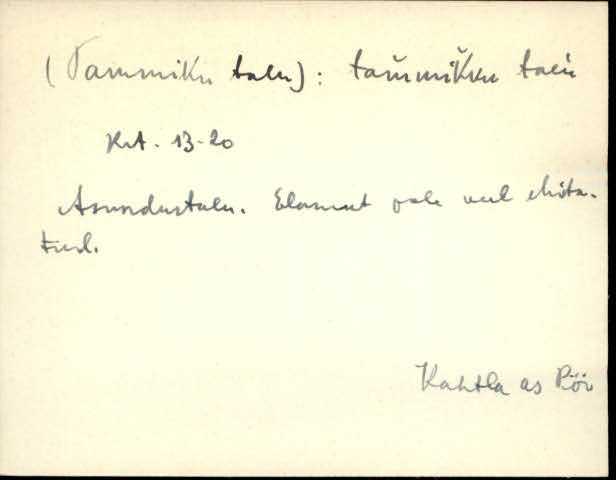 (Tammiku talu): tam̆mik̆ku talu
Krt. 13-20
Asundustalu. Elamut pole veel ehita-
tud.
Kahtla as Pöi